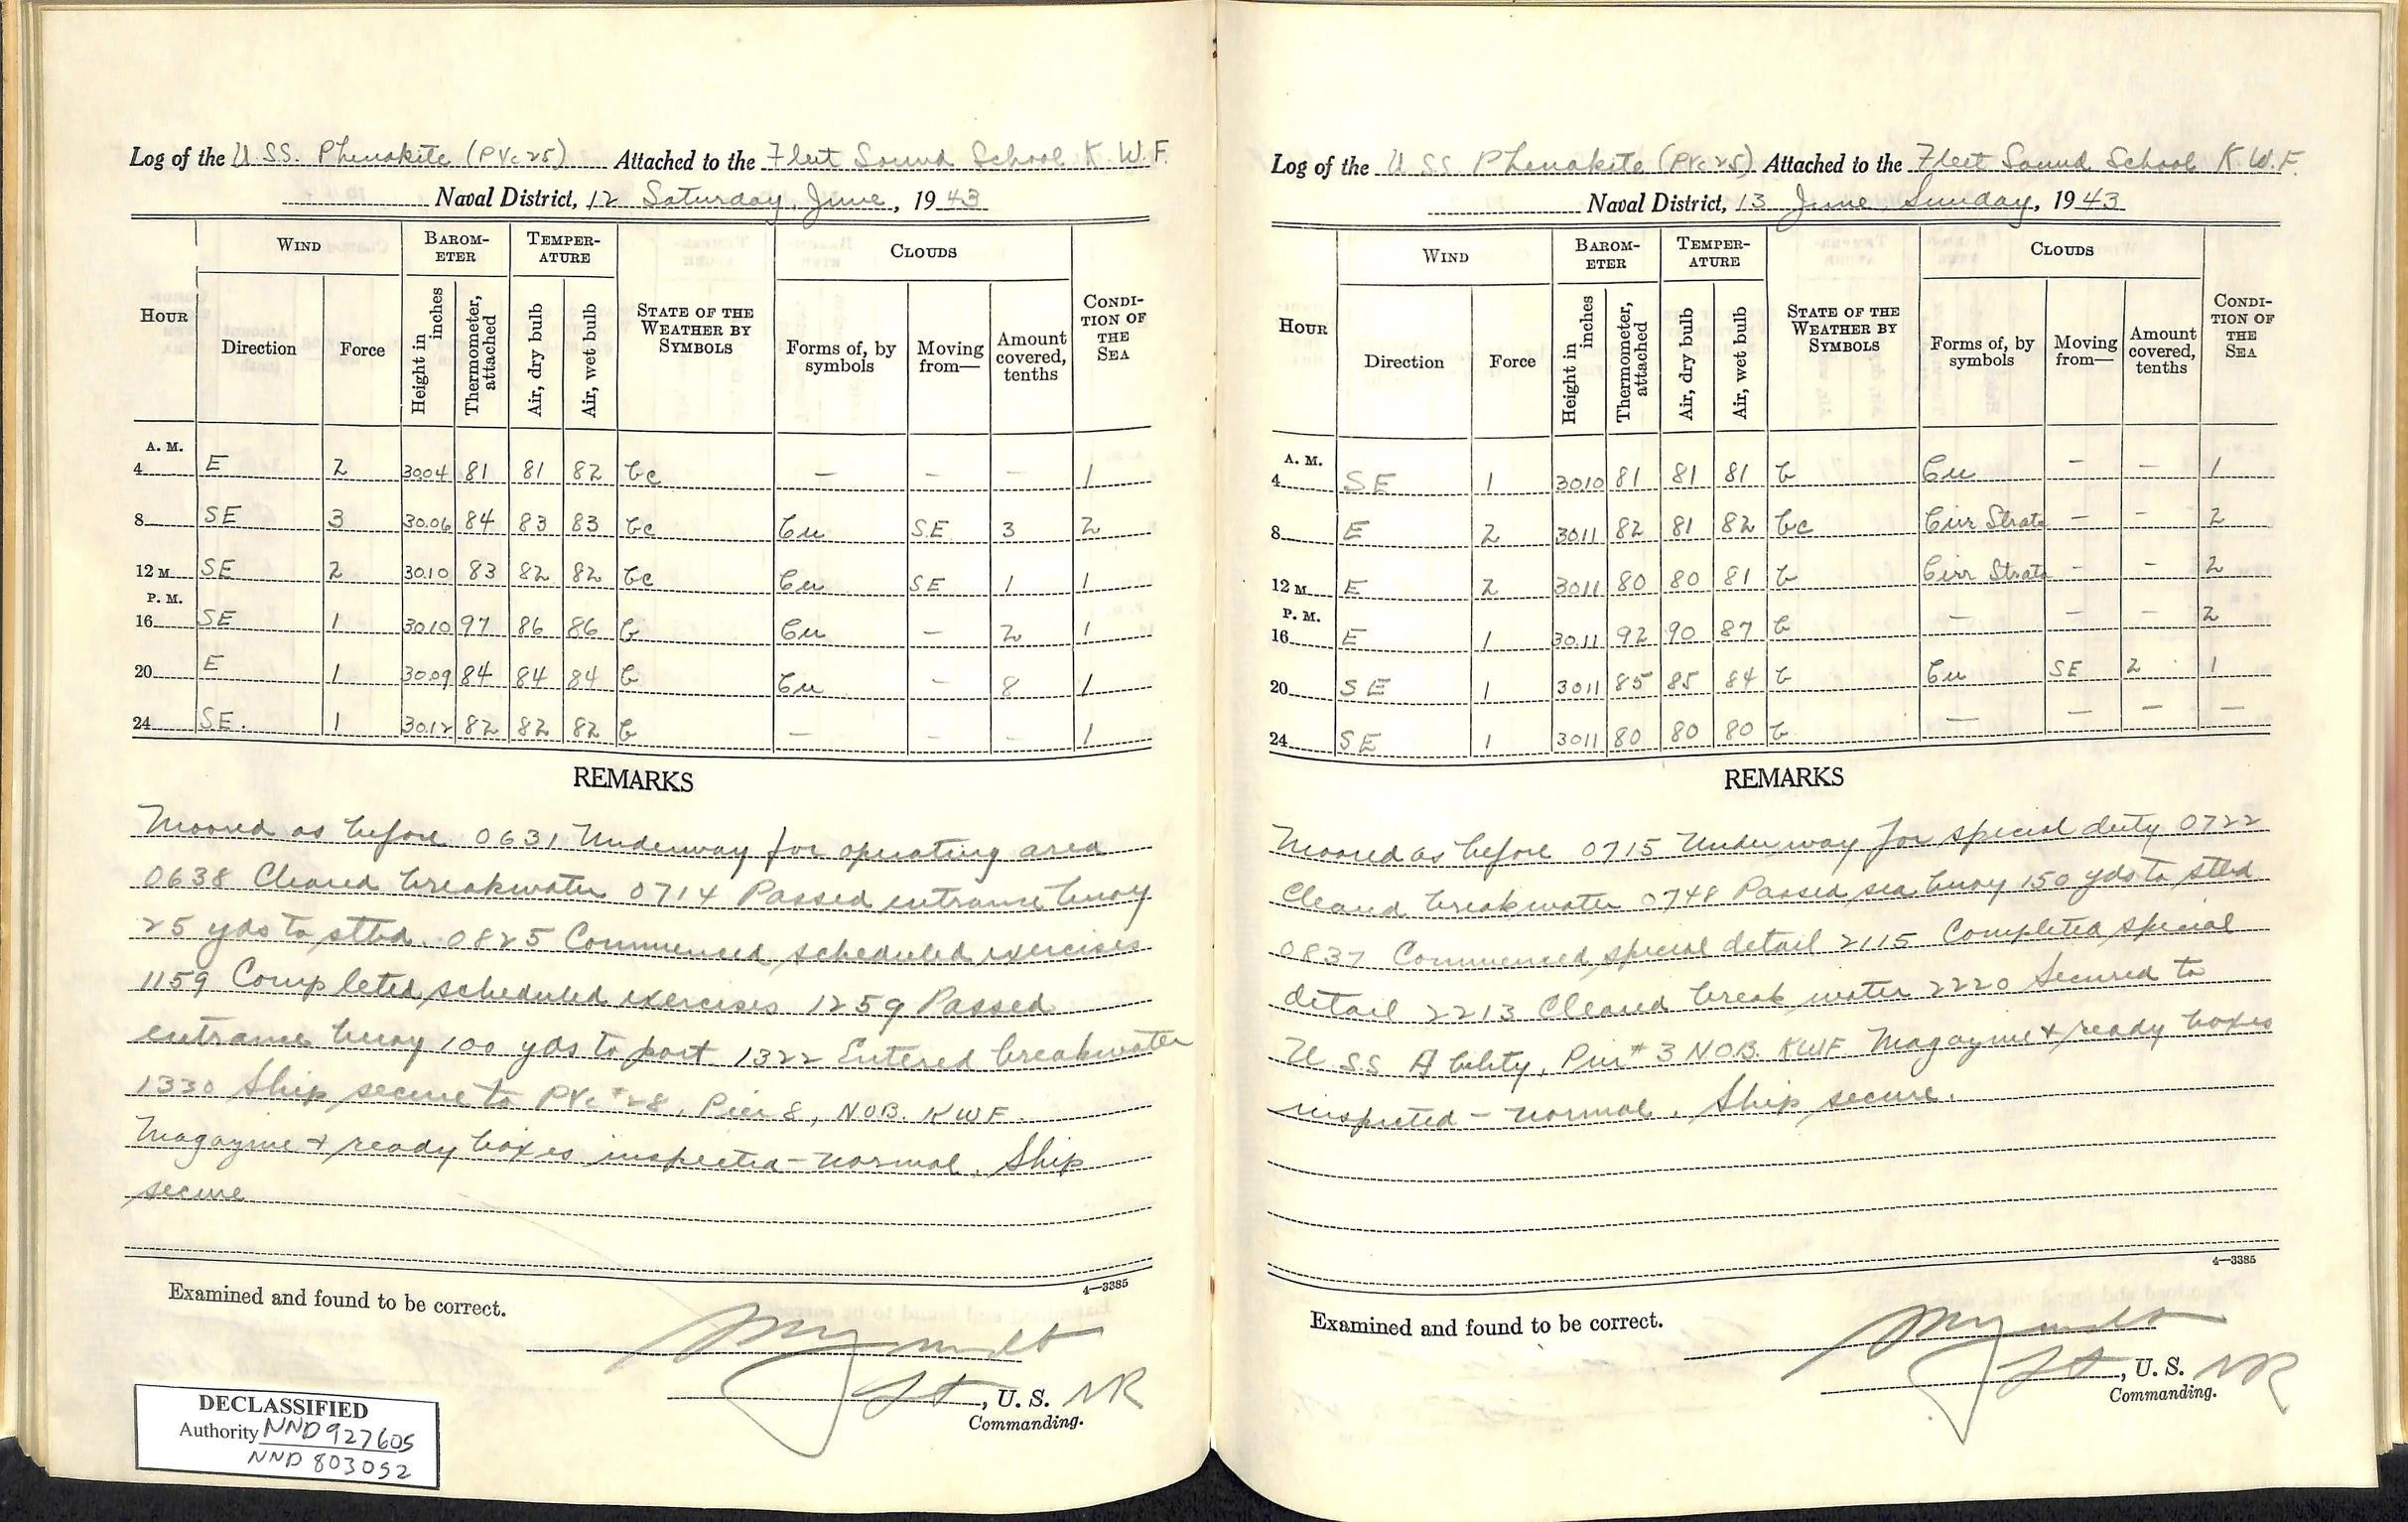 Log of the U SS. Phenakite (PYc 25) Attached to the Fleet Sound School K. W. F.
Naval District, 12 Saturday, June, 1943
HOUR WIND BAROMETER TEMPERATURE STATE OF THE WEATHER BY SYMBOLS CLOUDS CONDITION OF THE SEA
Direction Force Height in inches Thermometer, attached Air, dry bulb Air, wet bulb Forms of, by symbols Moving from— Amount covered, tenths
A. M.
4 E 2 30.04 81 81 82 bc — — — 1
8 SE 3 30.06 84 83 83 bc Cu SE 3 2
12 M SE 2 30.10 83 82 82 bc Cu SE 1 1
P. M.
16 SE 1 30.10 97 86 86 b Cu — 2 1
20 E 1 30.09 84 84 84 b Cu — 8 1
24 SE. 1 30.12 82 82 82 b — — — 1
REMARKS
Moored as before. 0631 Underway for operating area
0638 Cleared breakwater 0714 Passed entrance buoy
25 yds to stbd. 0825 Commenced scheduled exercises
1159 Completed scheduled exercises 1259 Passed
entrance buoy 100 yds to port 1322 Entered breakwater
1330 Ship secure to PYc #28, Pier 8, NOB. KWF.
Magazine & ready boxes inspected – normal. Ship
secure
4—3385
Examined and found to be correct.
Lt, U. S. NR
Commanding.
DECLASSIFIED
Authority NND 927605
NND 803052
Log of the U SS Phenakite (PYc 25) Attached to the Fleet Sound School K. W. F.
Naval District, 13 June, Sunday, 1943
HOUR WIND BAROMETER TEMPERATURE STATE OF THE WEATHER BY SYMBOLS CLOUDS CONDITION OF THE SEA
Direction Force Height in inches Thermometer, attached Air, dry bulb Air, wet bulb Forms of, by symbols Moving from— Amount covered, tenths
A. M.
4 SE 1 30.10 81 81 81 b Cu — — 1
8 E 2 30.11 82 81 82 bc Cirr Strato — — 2
12 M E 2 30.11 80 80 81 b Cirr Strato — — 2
P. M.
16 E 1 30.11 92 90 87 b — — — 2
20 SE 1 30.11 85 85 84 b Cu SE 2 1
24 SE 1 30.11 80 80 80 b — — — —
REMARKS
Moored as before 0715 Underway for special duty 0722
Cleared breakwater 0748 Passed sea buoy 150 yds to stbd
0837 Commenced special detail 2115 Completed special
detail 2213 Cleared break water 2220 Secured to
U S.S Ability, Pier #3 NOB. KWF. Magazine & ready boxes
inspected – normal. Ship secure.
4—3385
Examined and found to be correct.
Lt, U. S. NR
Commanding.